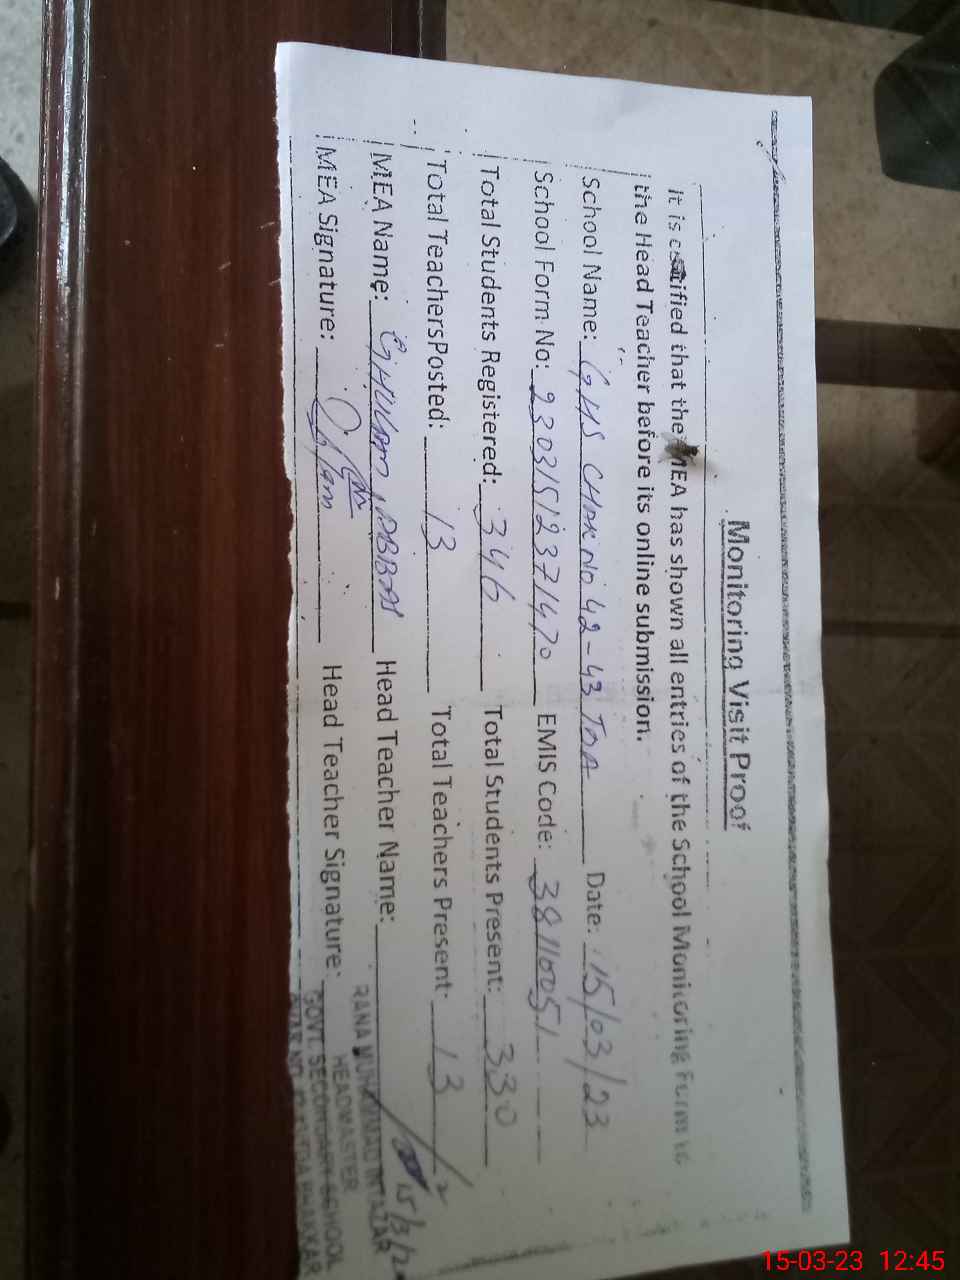 Monitoring Visit Proof
It is certified that the MEA has shown all entries of the School Monitoring Form to
the Head Teacher before its online submission.
School Name: GHS CHAK NO 42-43 TDA Date: 15/03/23
School Form No: 23031512371470 EMIS Code: 38110051
Total Students Registered: 346 Total Students Present: 330
Total TeachersPosted: 13 Total Teachers Present: 13
MEA Name: GHULAM ABBAS Head Teacher Name:
MEA Signature: Head Teacher Signature:
15/3/2
RANA MUHAMMAD INTAZAR
HEADMASTER
GOVT. SECONDARY SCHOOL
15-03-23 12:45